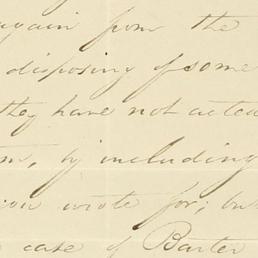 again from the
disposing of some
they have not acted
by including
you wrote for; but
case of Barter